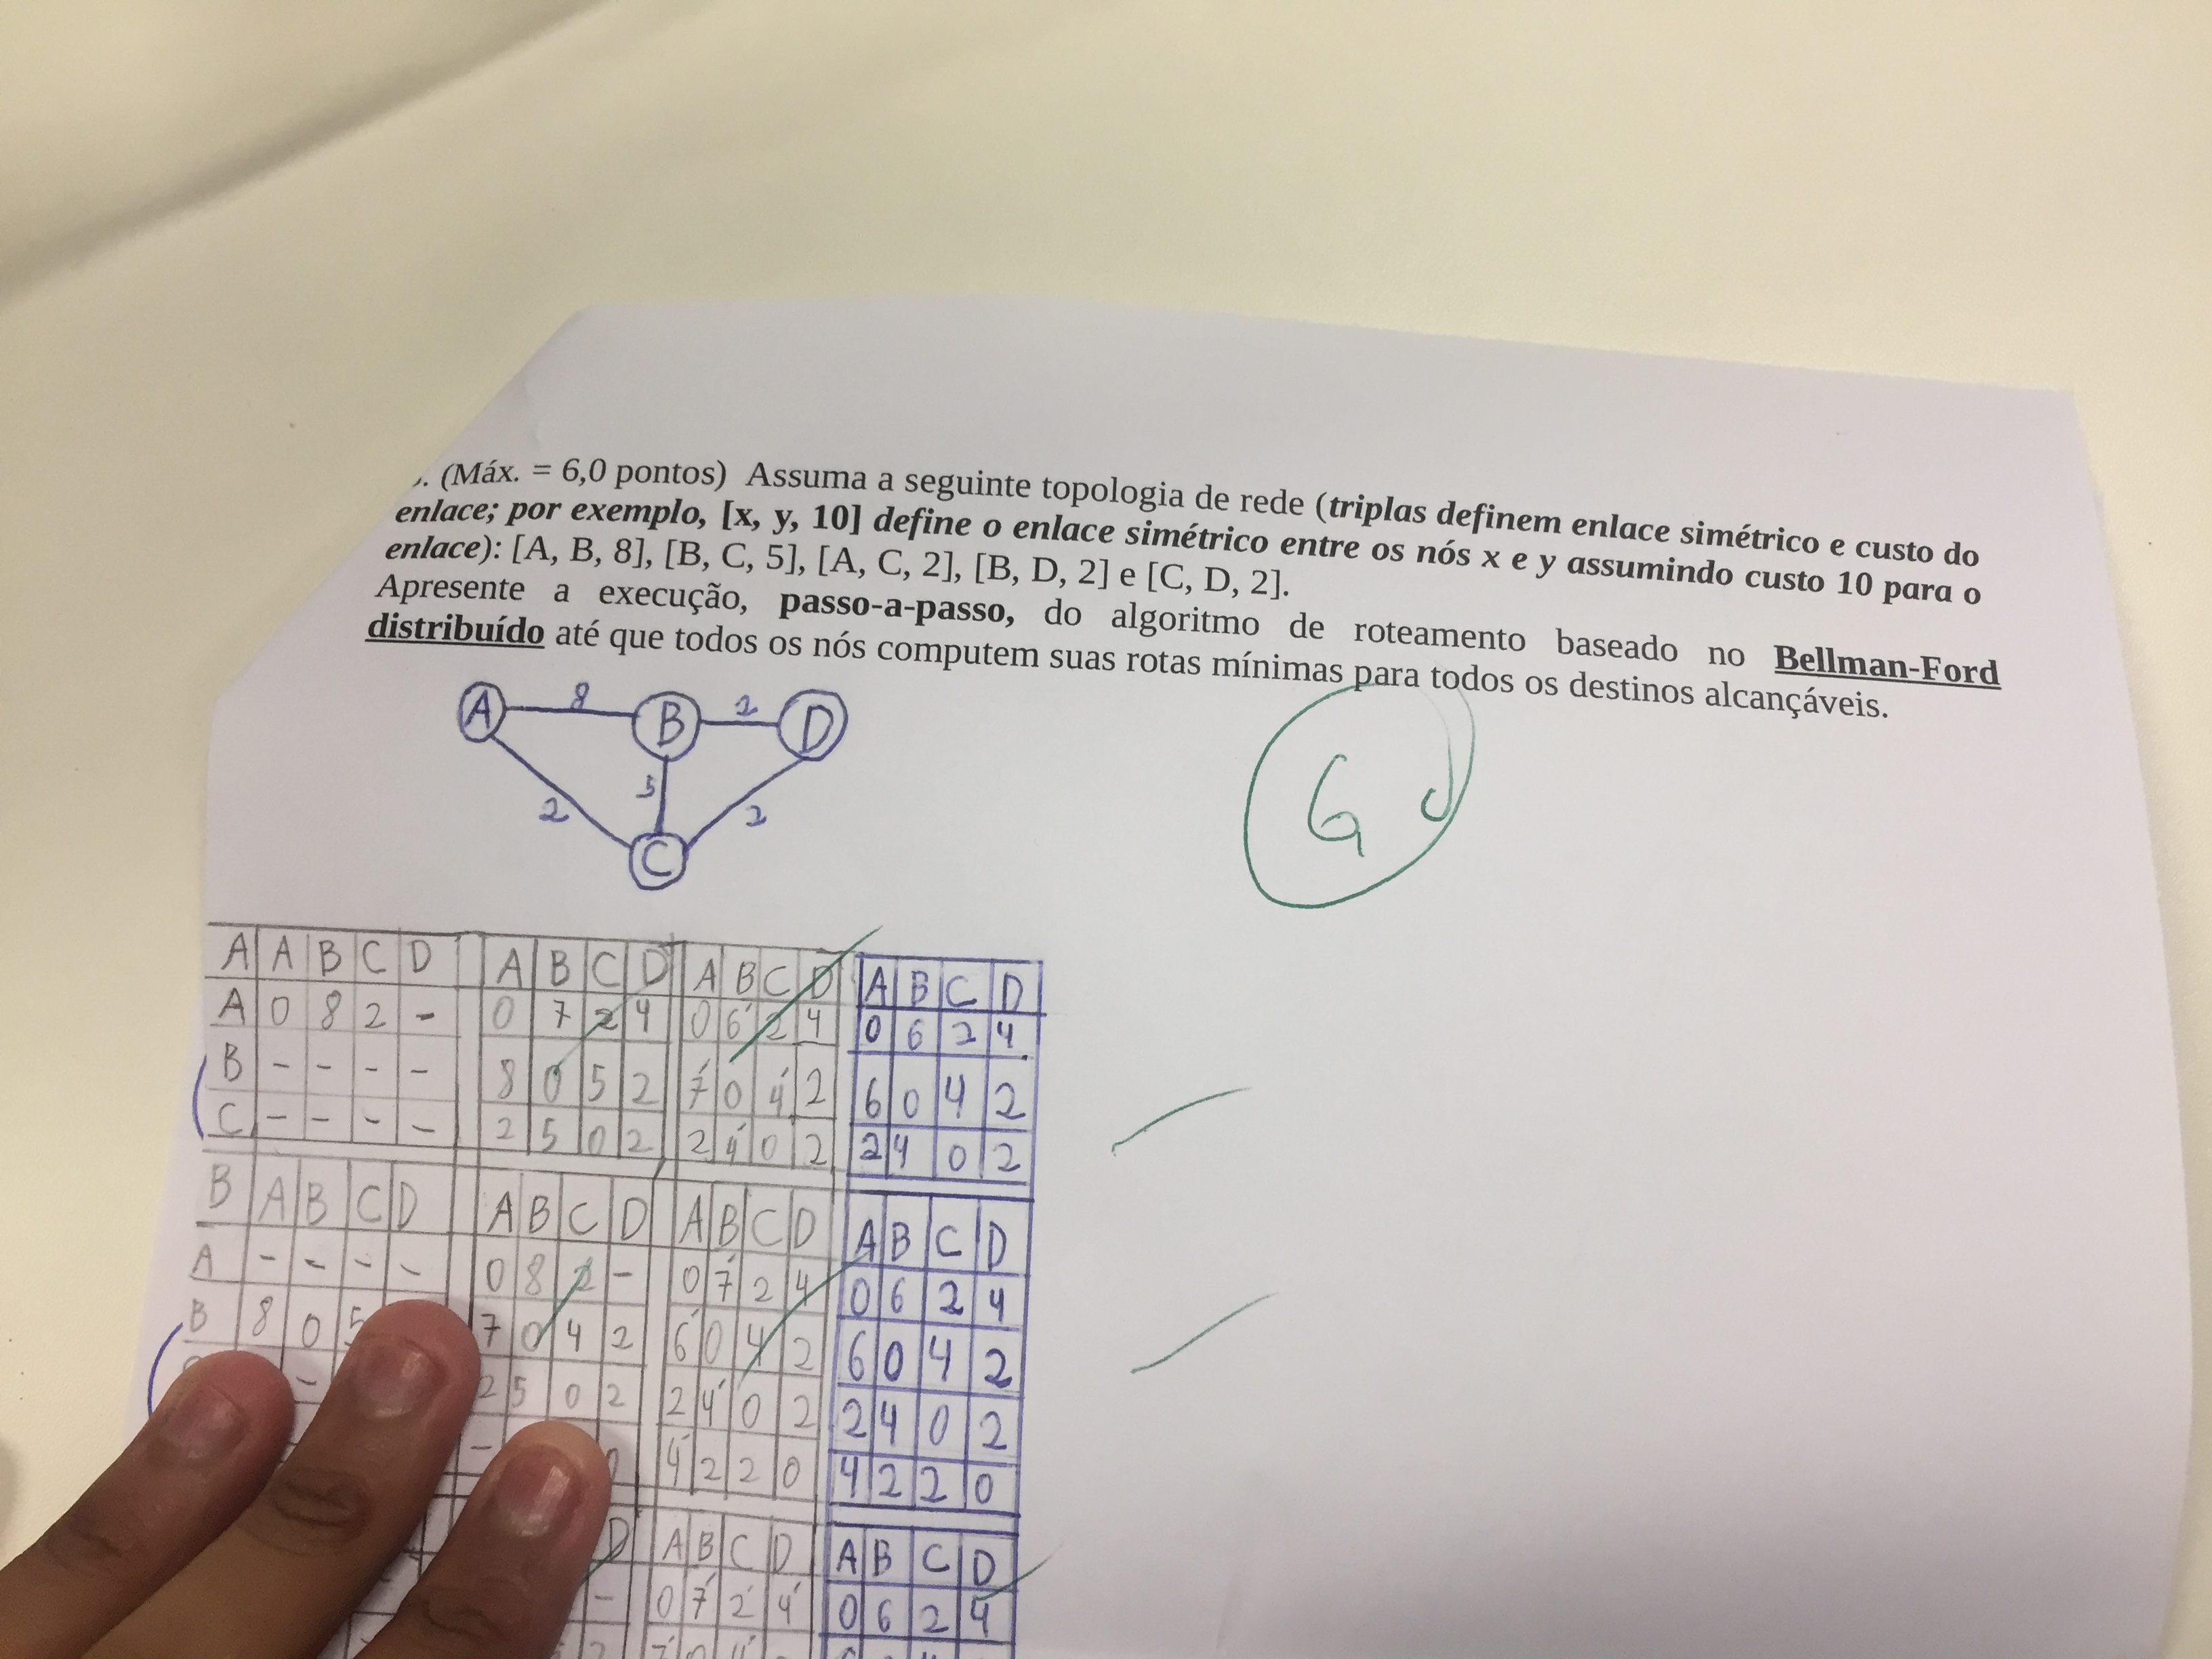 . (Máx. = 6,0 pontos) Assuma a seguinte topologia de rede (triplas definem enlace simétrico e custo do
enlace; por exemplo, [x, y, 10] define o enlace simétrico entre os nós x e y assumindo custo 10 para o
enlace): [A, B, 8], [B, C, 5], [A, C, 2], [B, D, 2] e [C, D, 2].
Apresente a execução, passo-a-passo, do algoritmo de roteamento baseado no Bellman-Ford
distribuído até que todos os nós computem suas rotas mínimas para todos os destinos alcançáveis.
A 8 B 2 D
2 5 2
C
A A B C D A B C D A B C D A B C D
A 0 8 2 - 0 7 2 4 0 6 2 4 0 6 2 4
B - - - - 8 0 5 2 7 0 4 2 6 0 4 2
C - - - - 2 5 0 2 2 4 0 2 2 4 0 2
B A B C D A B C D A B C D A B C D
A - - - - 0 8 2 - 0 7 2 4 0 6 2 4
B 8 0 5 7 0 4 2 6 0 4 2 6 0 4 2
- 2 5 0 2 2 4 0 2 2 4 0 2
- 4 2 2 0 4 2 2 0
D A B C D A B C D
- 0 7 2 4 0 6 2 4